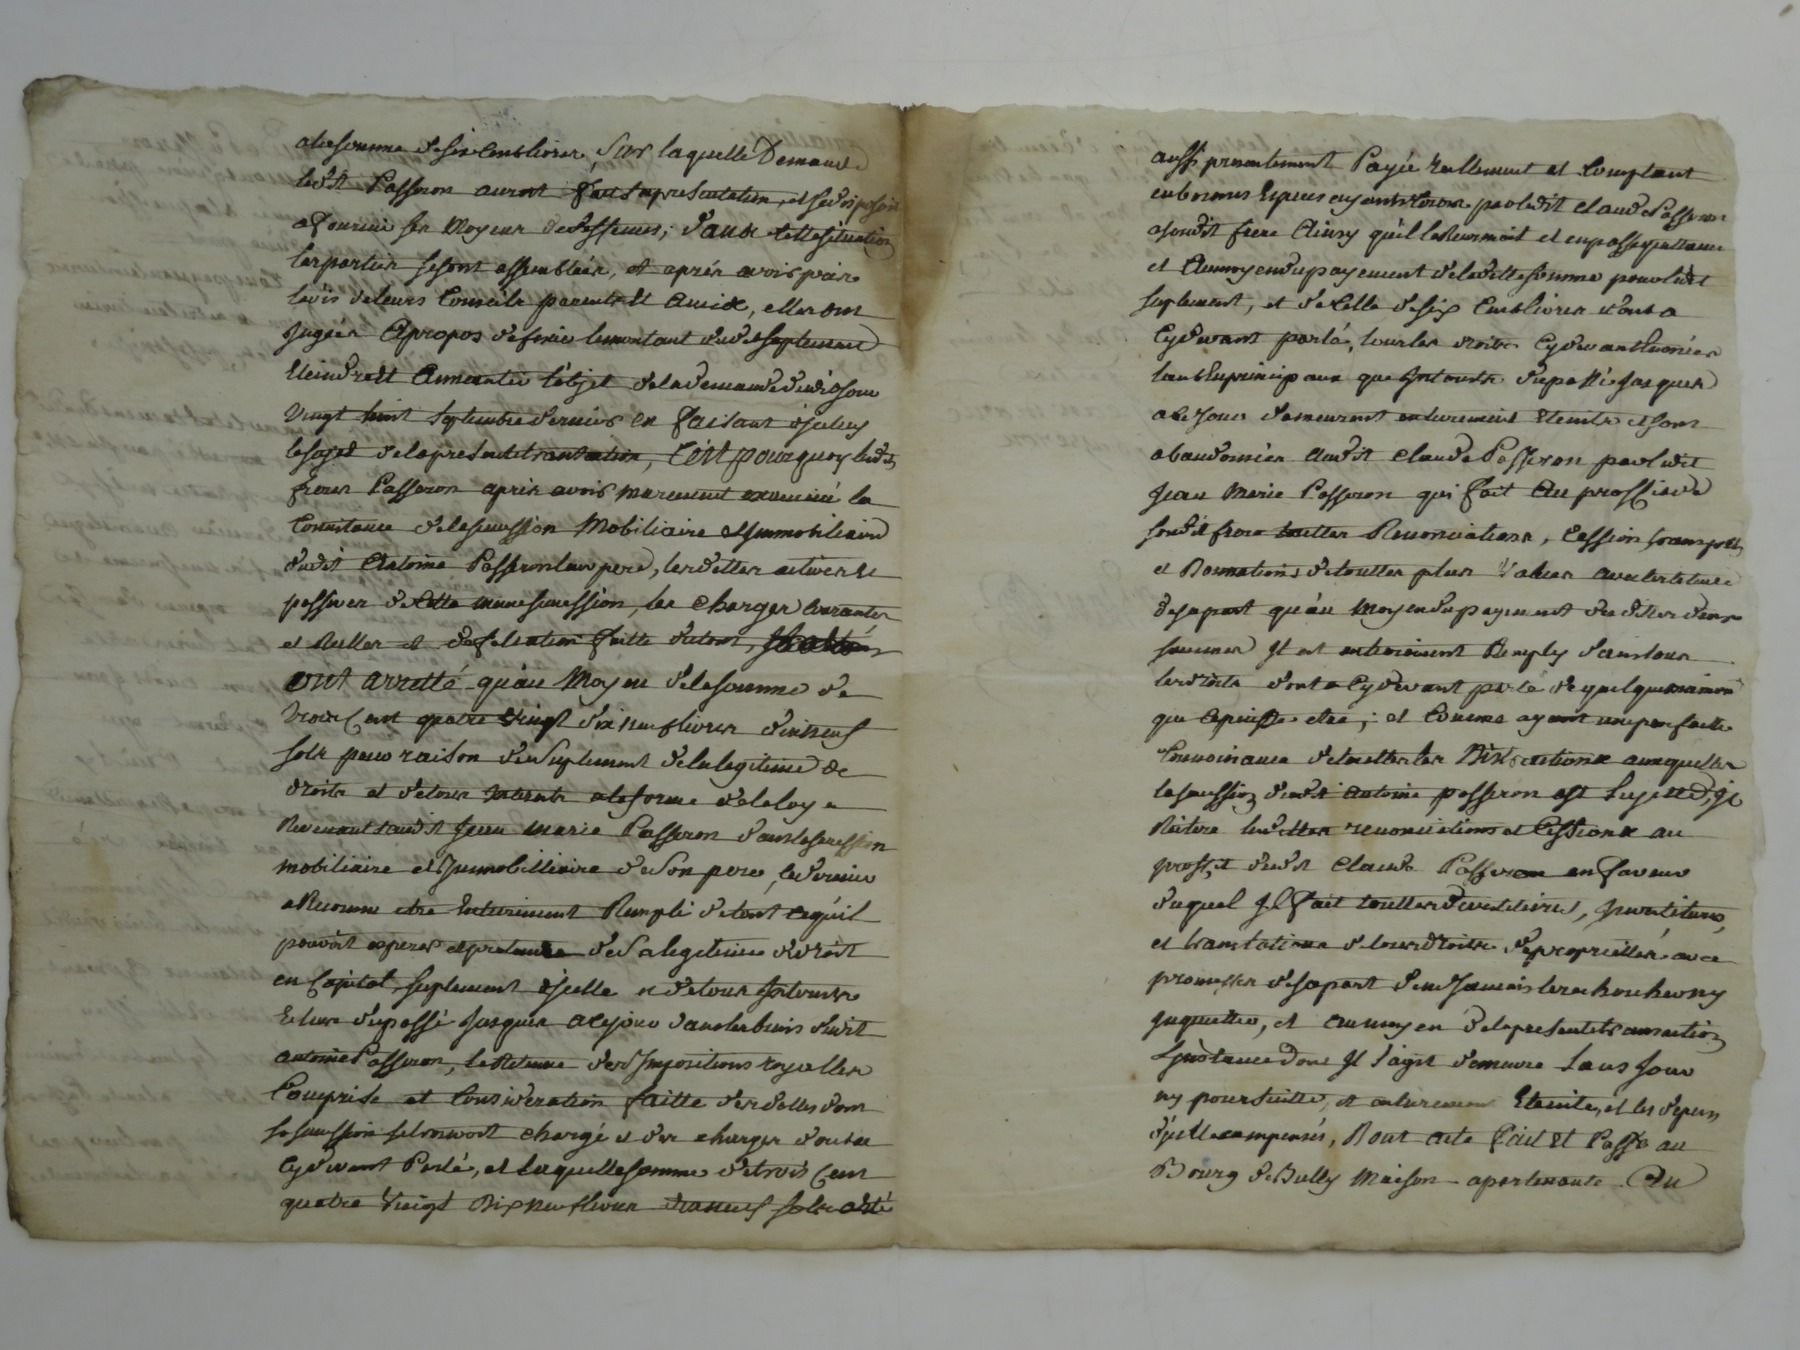 a la somme de six cent livres, sur laquelle Demande
ledit Passeron auroit fait representation, et se disposoit
a fournir ses moyens de deffenses; dans cette situation
les parties se sont assemblées, et aprés avois pris
lavis de leurs Conseils parents et Amix, elles ont
jugées apropos de fixer le montant dudit suplement
Eteindre et Anneantir lobjet de la demande dudit jour
Vingt huit Septembre dernier en faisant d'iceluy
le sujet de la presente transaction, C'est pourquoy lesdits
freres Passeron aprés avois murement examiné la
Consistance de la sucession Mobiliaire et Immobiliaire
dudit Antoine Passeron leur pere, les dettes actives et
passives de cette meme sucession, les charges courantes
et Reelles et defalcation faitte du tout,
ont arretté qu'au Moyen de la somme de
trois Cent quatre Vingt dix neuf livres dix neuf
sols pour raison du Suplement de la legitime de
droits et de tous interets a la forme de la loy
Revenant audit Jean Marie Passeron dans la sucession
mobiliaire et Immobilliaire de son pere, ce dernier
a Reconnu etre Entierement Rempli de tout ce qu'il
pouvoit esperer et pretendre de sa legitime de droit
en Capital, suplement d'icelle et de tous Interets
Echus du passé jusques a ce jour dans les biens dudit
antoine Passeron, la Retenue des Impositions royalles
Comprise et Consideration faitte des dettes dont
sa sucession se trouvoit chargé et des charges dont a
Cy devant Parlé, et laquelle somme de trois Cent
quatre Vingt Dix neuf livres dix neuf sols a été
aussi presentement Payée Reellement et Comptant
en bonnes Especes ayant cours par ledit Claude Passeron
a sondit frere Ainsy qu'il le Reconnoit et en passe quittance
et Au moyen du payement de laditte somme pour ledit
suplement, et de celle de six Cent livres dont a
Cy devant parlé, tous les droits Cy devant Enoncés
tant En principaux que Interets du passé jusques
a ce jour demeurent entierement Eteints et sont
abandonnées audit Claude Passeron par ledit
Jean Marie Passeron qui fait Au proffit de
sondit frere touttes Renonciations, Cession transports
et Donnations de touttes plus Values
de sa part qu'au Moyen du payement desdittes deux
sommes Il est entierement Remply dans tous
les droits dont a Cy devant parlé de quelque nature
que ce puisse etre; et Comme ayant une parfaite
Connoissance de touttes les Distractions auxquelles
la sucession dudit antoine passeron est sujette, Il
Reitere lesdittes renonciations et Cessions au
proffit dudit Claude Passeron en faveur
duquel Il fait touttes devestitures, Investitures,
et translations de tous droits de proprieté avec
promesse de sa part de ne Jamais le rechercher ny
Inquietter, et au moyen de la presente transaction
L'jnstance dont Il s'agit demeure sans jour
ny poursuitte, et entierement Eteinte, et les depens
d'jcelle compensés, Dont acte fait Et Passé au
Bourg de Bully Maison apartenante Au